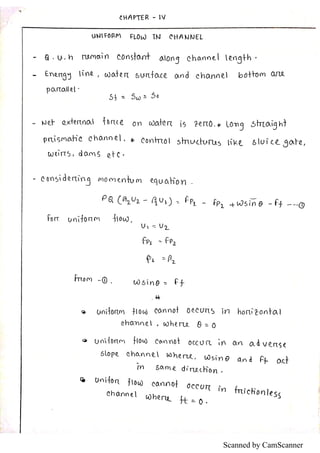 CHAPTER - IV
UNIFORM FLOW IN CHANNEL
- Q.U.h remain constant along channel length.
- Energy line, water surface and channel bottom are
parallel.
Sf = Sw = So
- Net external force on water is zero. * Long straight
prismatic channel. * Control structures like sluice gate,
weirs, dams etc.
- Considering momentum equation.
PQ (β2U2 - β1U1) = FP1 - FP2 + Wsinθ - Ff --①
For uniform flow,
U1 = U2
FP1 = FP2
β1 = β2
From -①. Wsinθ = Ff
Uniform flow cannot occurs in horizontal
channel, where θ = 0
uniform flow cannot occur in an adverse
slope channel where, Wsinθ and Ff act
in same direction.
Unifon flow cannot occur in frictionless
channel where ff = 0.
Scanned by CamScanner